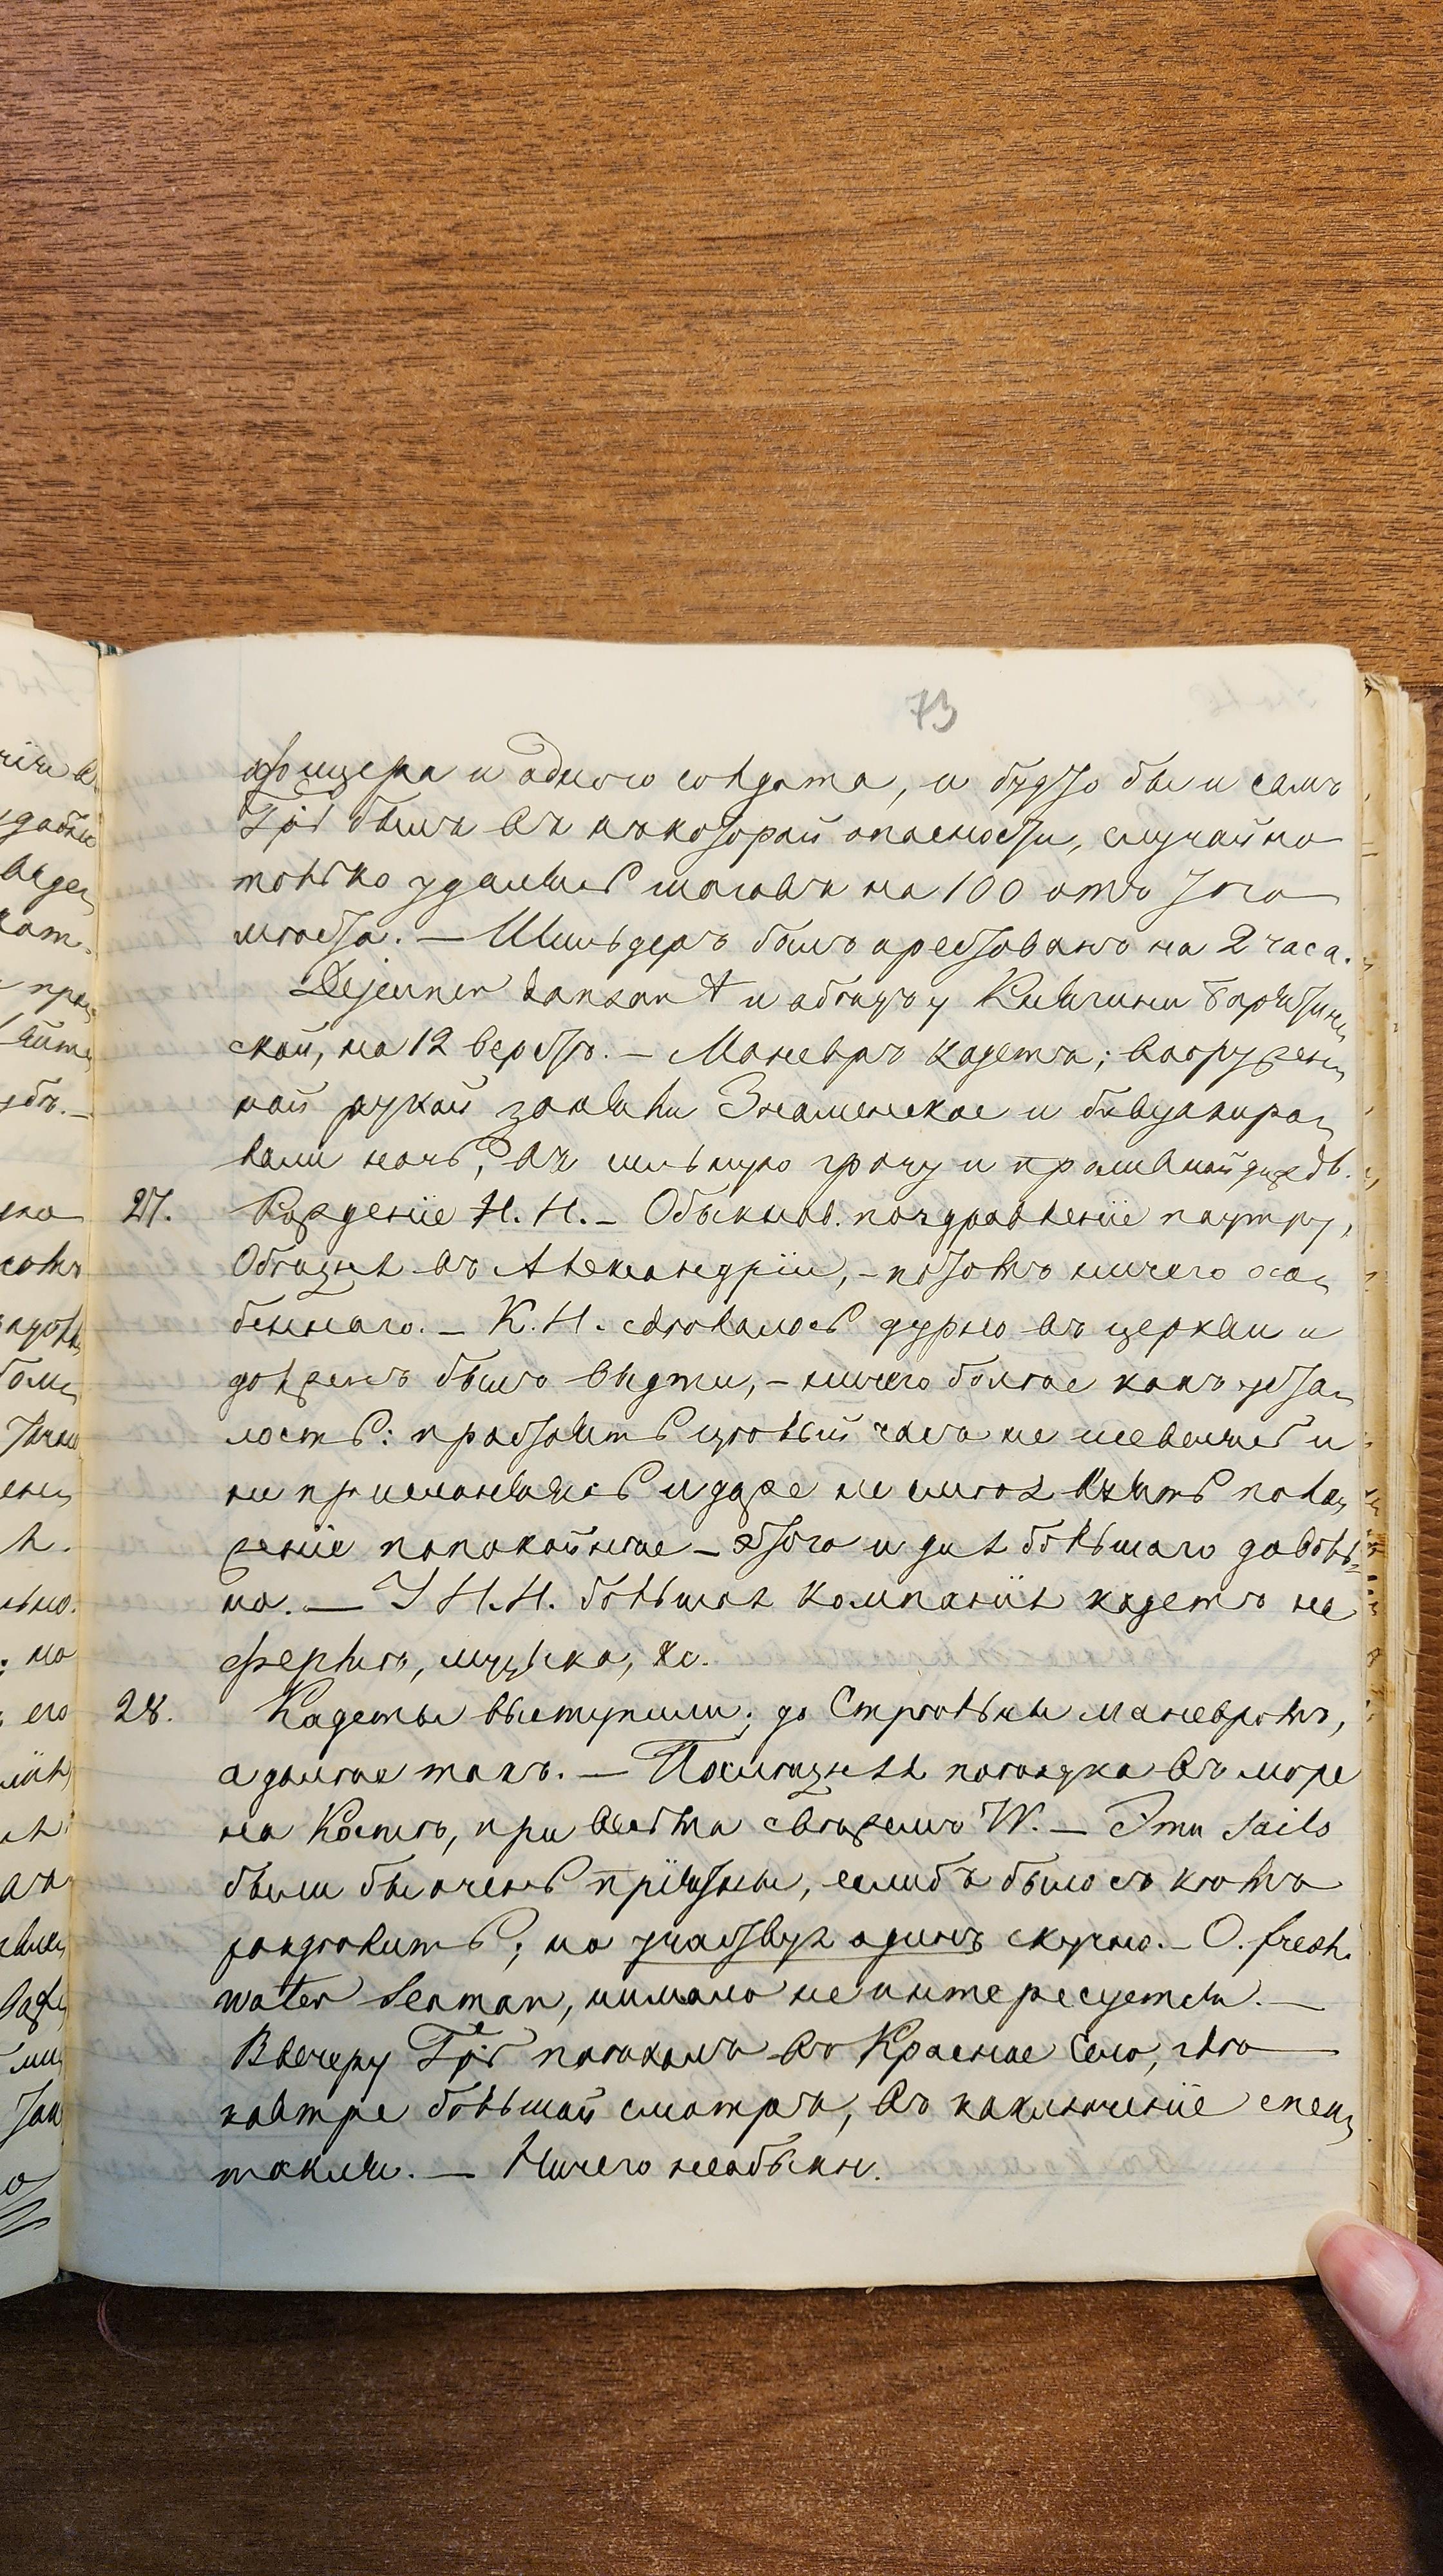 73
офицера и одного солдата, и будто бы и самъ
Грдь былъ въ нѣкоторой опасности, случайно
только удалясь шаговъ на 100 отъ того
мѣста. — Шильдеръ былъ арестованъ на 2 часа.
Dejeuner dansant и обѣдъ у Княгини Барятин
ской, на 12 верстѣ. — Маневръ кадетъ; вооружен
ной рукой заняли Знаменское и бивуакиро
вали ночь, въ сильную грозу и проливной дождь.
27. Рожденіе Н. Н. — Обыкнов. поздравленіе поутру,
Обѣдня въ Александріи, — потомъ ничего осо
беннаго. — К. Н. сдѣлалось дурно въ церкви и
долженъ былъ выдти, — ничего болѣе какъ уста
лость: простоять цѣлый часъ не шевелясь и
не прислоняясь и даже не смѣя взять поло
женіе попокойнѣе — этого и для большаго доволь
но. — У Н. Н. большая компанія кадетъ на
фермѣ, музыка, &c.
28. Кадеты выступили; до Стрѣльны маневромъ,
а далѣе такъ. — Послѣдняя поѣздка въ море
на Костѣ, при весьма свѣжемъ W. — Эти sails
были бы очень пріятны, еслибъ было съ кѣмъ
раздѣлить; но участвуя одинъ скучно. — O. fresh
water Seaman, нимало не интересуется. —
Ввечеру Грдь поѣхалъ въ Красное Село, гдѣ
завтре большой смотръ, въ заключеніе спек
такли. — Ничего необыкн.